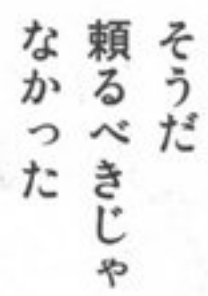 そうだ
頼るべきじゃ
なかった